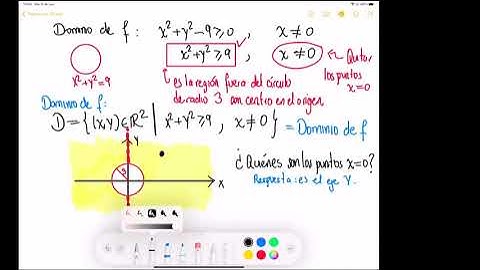 Dominio de f: x²+y²-9≥0, x≠0
x²+y²≥9, x≠0 ← Quitar los puntos x=0
x²+y²=9
es la región fuera del círculo de radio 3 con centro en el origen.
Dominio de f:
D={(x,y)∈ℝ² | x²+y²≥9, x≠0} = Dominio de f
y
3
x
¿Quiénes son los puntos x=0?
Respuesta: es el eje Y.